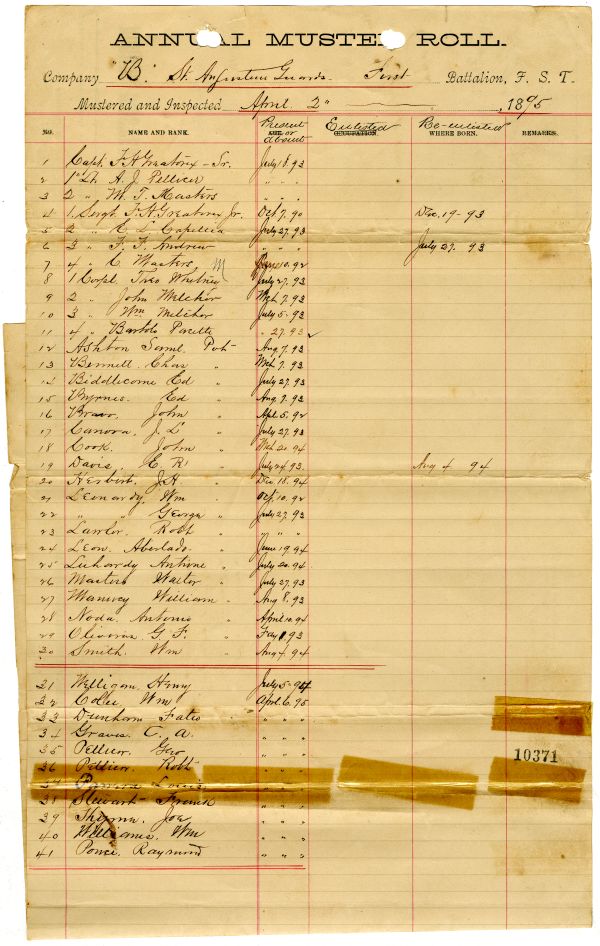 ANNUAL MUSTER ROLL.
Company "B" St. Augustine Guards First Battalion, F. S. T.
Mustered and Inspected April 2" 1895
No. NAME AND RANK. Present or absent Enlisted OCCUPATION Re-enlisted WHERE BORN. REMARKS.
1 Capt. F. H. Greatorex - Sr. July 18. 93
2 1st Lt. A. J. Pellicer " " "
3 2 " M. T. Masters " " "
4 1. Sergt. F. H. Greatorex Jr. Oct. 7. 90 Dec. 19 - 93
5 2 " E. L. Capella July 27. 93
6 3 " F. F. Andrew " " " July 27. 93
7 4 " C. Masters 10. 92
8 1 Corpl. Theo Whitney July 27. 93
9 2 " John Melchor Mch 7. 93
10 3 " Wm Melchor July 5. 93
11 4 " Bartolo Pacetti " 27. 93
12 Ashton Saml. Pvt. Aug 7. 93
13 Bennett Chas " Mch 7. 93
14 Biddlecome Ed " July 27. 93
15 Byrnes. Ed " Aug 7. 93
16 Bravo. John " Apl. 5. 92
17 Canova. J. L " July 27. 93
18 Cook. John " Mch 20. 94
19 Davis, E. R. " July 24. 93 Aug 4 94
20 Herbert. J. H. " Dec. 18. 94
21 Leonardy. Wm " Oct. 10. 92
22 " " George " July 27. 93
23 Lawlor Robt " " " "
24 Leon. Aberlado. " June 19. 94
25 Luhardy Antoine " July 20. 94
26 Masters Walter " July 27. 93
27 Manucy William " Aug 8. 93
28 Noda. Antonio " April 10. 94
29 Oliveros G. F. " 93
30 Smith. Wm " Aug 4. 94
31 Welligan. Henry July 5 - 94
32 Wm April 6. 95
33 Dunham Fatio " " "
34 Graves. C. A. " " "
35 Pellicer. Geo " " "
36 Pellicer Robt " " "
37 Louis " " "
38 Stewart Frank " " "
39 Joe " " "
40 Williams. Wm " " "
41 Ponce. Raymond " " "
10371